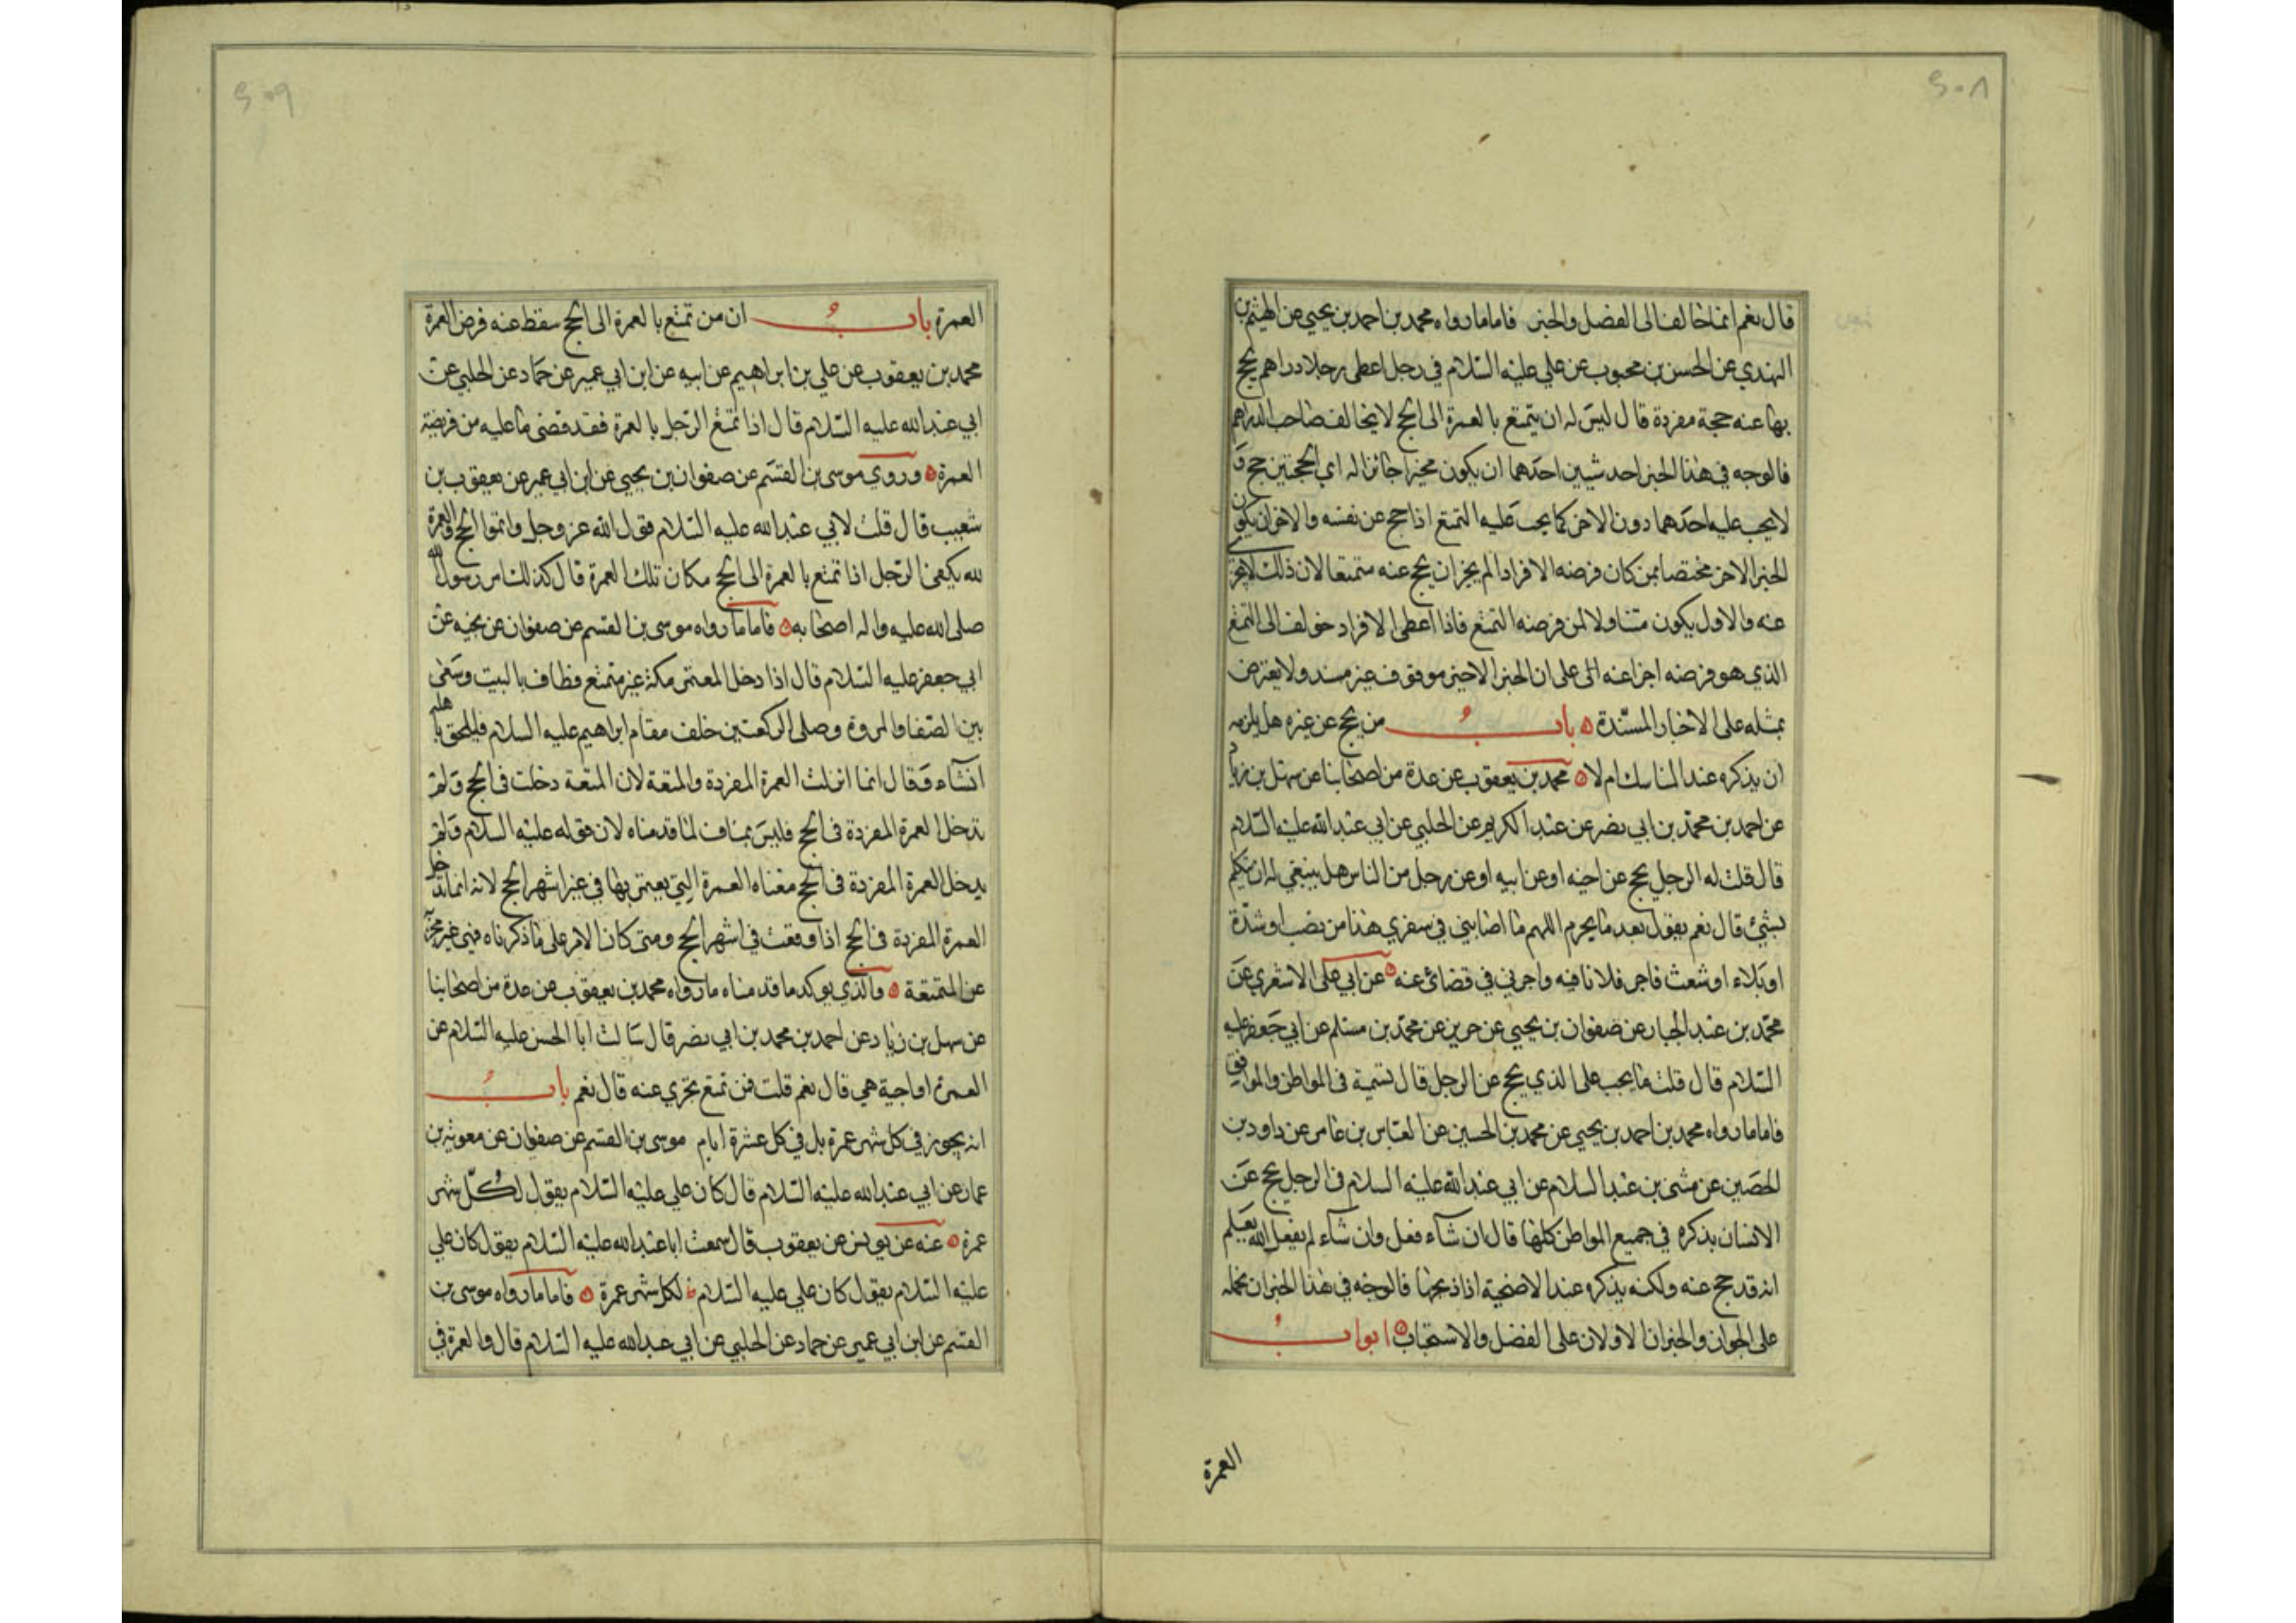 ۶۰۸
قال نعم انما خالف الى الفضل والخير فاما ما رواه محمد بن احمد بن يحيى عن الهيثم بن
النهدي عن الحسن بن محبوب عن علي عليه السلام في رجل اعطى رجلا دراهم يحج
بها عنه حجة مفردة قال ليس له ان يتمتع بالعمرة الى الحج لا يخالف صاحب الدراهم
فالوجه في هذا الخبر احد شيئين احدهما ان يكون مخيرا جائزا له اي الحجتين حج و
لا يجب عليه احدهما دون الاخر كما يجب عليه التمتع اذا حج عن نفسه والاخر ان يكون
الخبر الاخر مختصا بمن كان فرضه الافراد لم يجز ان يحج عنه متمتعا لان ذلك لا يجزي
عنه والاول يكون متناولا لمن فرضه التمتع فاذا اعطى الافراد خولف الى التمتع
الذي هو فرضه اجزا عنه الى على ان الخبر الاخير موقوف غير مسند ولا يعترض
بمثله على الاخبار المسندة باب من يحج عن غيره هل يلزمه
ان يذكره عند المناسك ام لا محمد بن يعقوب عن عدة من اصحابنا عن سهل بن زياد
عن احمد بن محمد بن ابي نصر عن عبد الكريم عن الحلبي عن ابي عبد الله عليه السلام
قال قلت له الرجل يحج عن اخيه او عن ابيه او عن رجل من الناس هل ينبغي له ان يتكلم
بشيء قال نعم يقول بعد ما يحرم اللهم ما اصابني في سفري هذا من نصب او شدة
او بلاء او شعث فاجر فلانا فيه واجرني في قضائي عنه عن ابي على الاشعري عن
محمد بن عبد الجبار عن صفوان بن يحيى عن حريز عن محمد بن مسلم عن ابي جعفر عليه
السلام قال قلت ما يجب على الذي يحج عن الرجل قال تسميه في المواطن والمواقف
فاما ما رواه محمد بن احمد بن يحيى عن محمد بن الحسين عن العباس بن عامر عن داود بن
الحصين عن مثنى بن عبد السلام عن ابي عبد الله عليه السلام في الرجل يحج عن
الانسان يذكره في جميع المواطن كلها قال ان شآء فعل وان شآء لم يفعل الله يعلم
انه قد حج عنه ولكنه يذكره عند الاضحية اذا ذبحها فالوجه في هذا الخبر ان نحمله
على الجواز والخبران الاولان على الفضل والاستحباب ابواب
العمرة
۶۰۹
العمرة باب ان من تمتع بالعمرة الى الحج سقط عنه فرض العمرة
محمد بن يعقوب عن علي بن ابراهيم عن ابيه عن ابن ابي عمير عن حماد عن الحلبي عن
ابي عبد الله عليه السلام قال اذا تمتع الرجل بالعمرة فقد قضى ما عليه من فريضة
العمرة وروي موسى بن القسم عن صفوان بن يحيى عن ابن ابي عمير عن يعقوب بن
شعيب قال قلت لابي عبد الله عليه السلام قول الله عز وجل واتموا الحج والعمرة
لله يكفي الرجل اذا تمتع بالعمرة الى الحج مكان تلك العمرة قال كذلك امر رسول الله
صلى الله عليه واله اصحابه فاما ما رواه موسى بن القسم عن صفوان عن نجيه عن
ابي جعفر عليه السلام قال اذا دخل المعتمر مكة غير متمتع فطاف بالبيت وسعى
بين الصفا والمروة وصلى الركعتين خلف مقام ابراهيم عليه السلام فليلحق باهله
ان شاء وقال انما انزلت العمرة المفردة والمتعة لان المتعة دخلت في الحج ولم
تدخل العمرة المفردة في الحج فليس بمناف لما قدمناه لان قوله عليه السلام ولم
يدخل العمرة المفردة في الحج معناه العمرة التي يعتمر بها في غير اشهر الحج لانه انما تدخل
العمرة المفردة في الحج اذا وقعت في اشهر الحج ومتى كان الامر على ما ذكرناه فهي غير مجزية
عن المتمتعة والذي يوكد ما قدمناه ما رواه محمد بن يعقوب عن عدة من اصحابنا
عن سهل بن زياد عن احمد بن محمد بن ابي نصر قال سالت ابا الحسن عليه السلام عن
العمرة اواجبة هي قال نعم قلت فمن تمتع تجزي عنه قال نعم باب
انه يجوز في كل شهر عمرة بل في كل عشرة ايام موسى بن القسم عن صفوان عن معوية بن
عمار عن ابي عبد الله عليه السلام قال كان علي عليه السلام يقول لكل شهر
عمرة عنه عن يونس عن يعقوب قال سمعت ابا عبد الله عليه السلام يقول كان علي
عليه السلام يقول كان علي عليه السلام لكل شهر عمرة فاما ما رواه موسى بن
القسم عن ابن ابي عمير عن حماد عن الحلبي عن ابي عبد الله عليه السلام قال والعمرة في